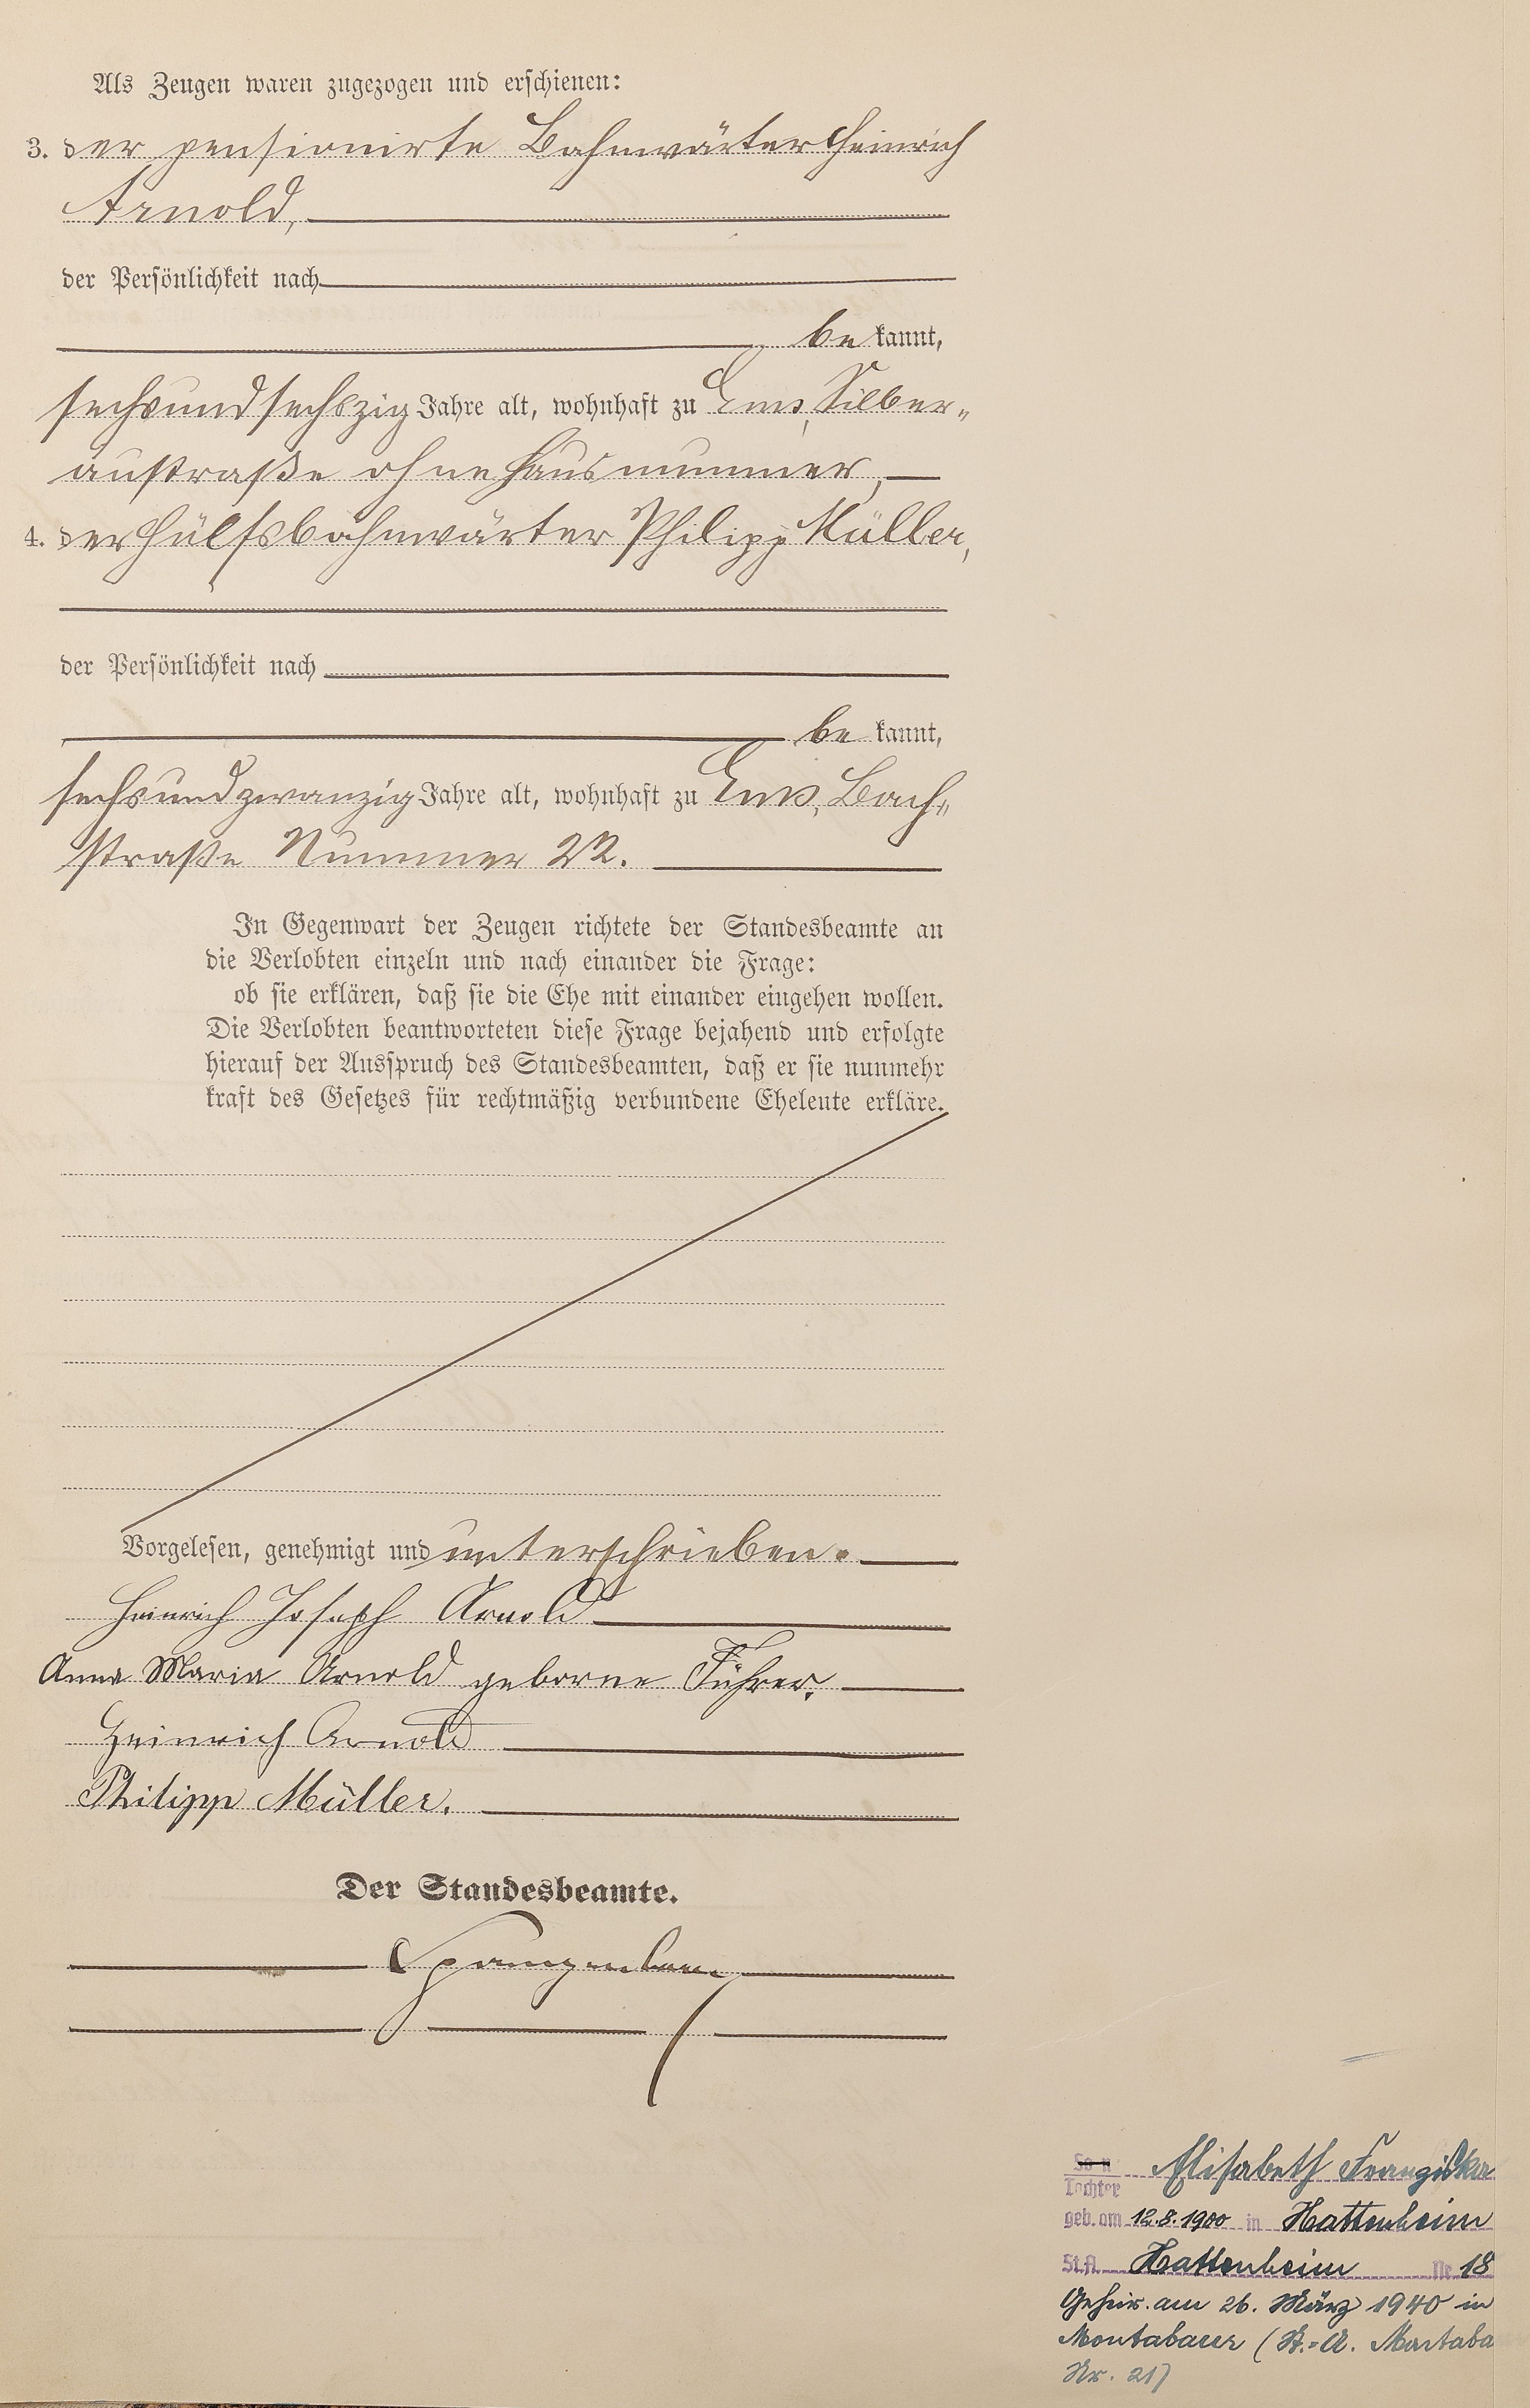 Als Zeugen waren zugezogen und erschienen:
3. der pensionirte Bahnwärter Heinrich
Arnold,
der Persönlichkeit nach
be kannt,
sechsundsechszig Jahre alt, wohnhaft zu Ems, Silber-
austraße ohne Hausnummer,
4. der Hülfsbahnwärter Philipp Müller,
der Persönlichkeit nach
be kannt,
sechsundzwanzig Jahre alt, wohnhaft zu Ems, Bach-
straße Nummer 22.
In Gegenwart der Zeugen richtete der Standesbeamte an
die Verlobten einzeln und nach einander die Frage:
ob sie erklären, daß sie die Ehe mit einander eingehen wollen.
Die Verlobten beantworteten diese Frage bejahend und erfolgte
hierauf der Ausspruch des Standesbeamten, daß er sie nunmehr
kraft des Gesetzes für rechtmäßig verbundene Eheleute erkläre.
Vorgelesen, genehmigt und unterschrieben.
Heinrich Joseph Arnold
Anna Maria Arnold geborne Führer.
Heinrich Arnold
Philipp Müller.
Der Standesbeamte.
Spangenberg
Sohn Elisabeth Franziska
Tochter
geb. am 12.8.1900 in Hattenheim
St.A. Hattenheim Nr. 18
Geheir. am 26. März 1940 in
Montabaur (St.-A. Montaba
Nr. 21)